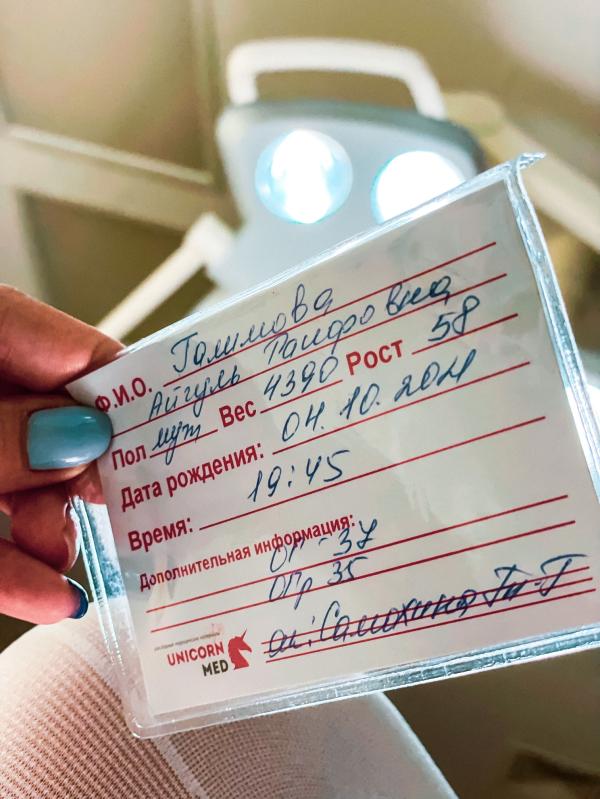 Ф.И.О. Галимова
Айгуль Раифовна
Пол муж Вес 4390 Рост 58
Дата рождения: 04.10.2021
Время: 19:45
Дополнительная информация:
ОГ-37
ОГр 35
ак: Самохина Т-Г
UNICORN
MED